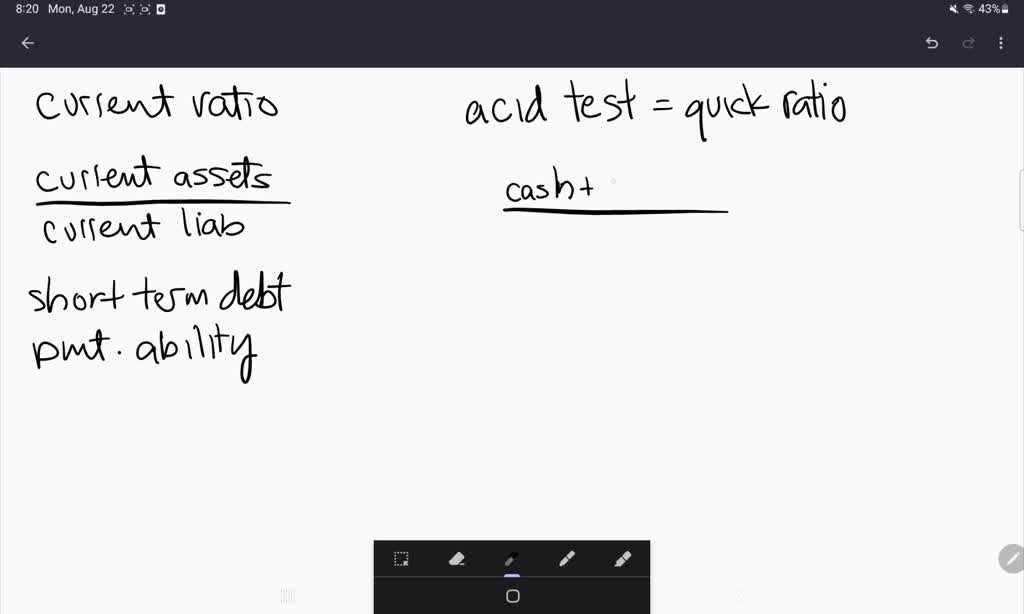 8:20 Mon, Aug 22
43%
current ratio
current assets
current liab
short term debt
pmt. ability
acid test = quick ratio
cash +